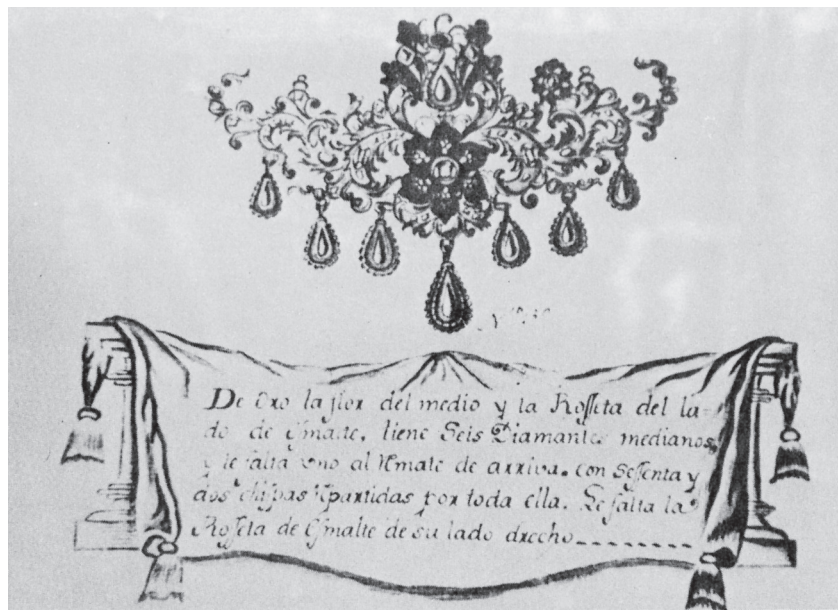 De Oro la flor del medio y la Rosseta del la-
do de Esmalte, tiene Seis Diamantes medianos,
y le falta vno al Rmate de arriva. con Sessenta y
dos chispas Rpartidas por toda ella. Le falta la
Rosseta de Esmalte de su lado drecho